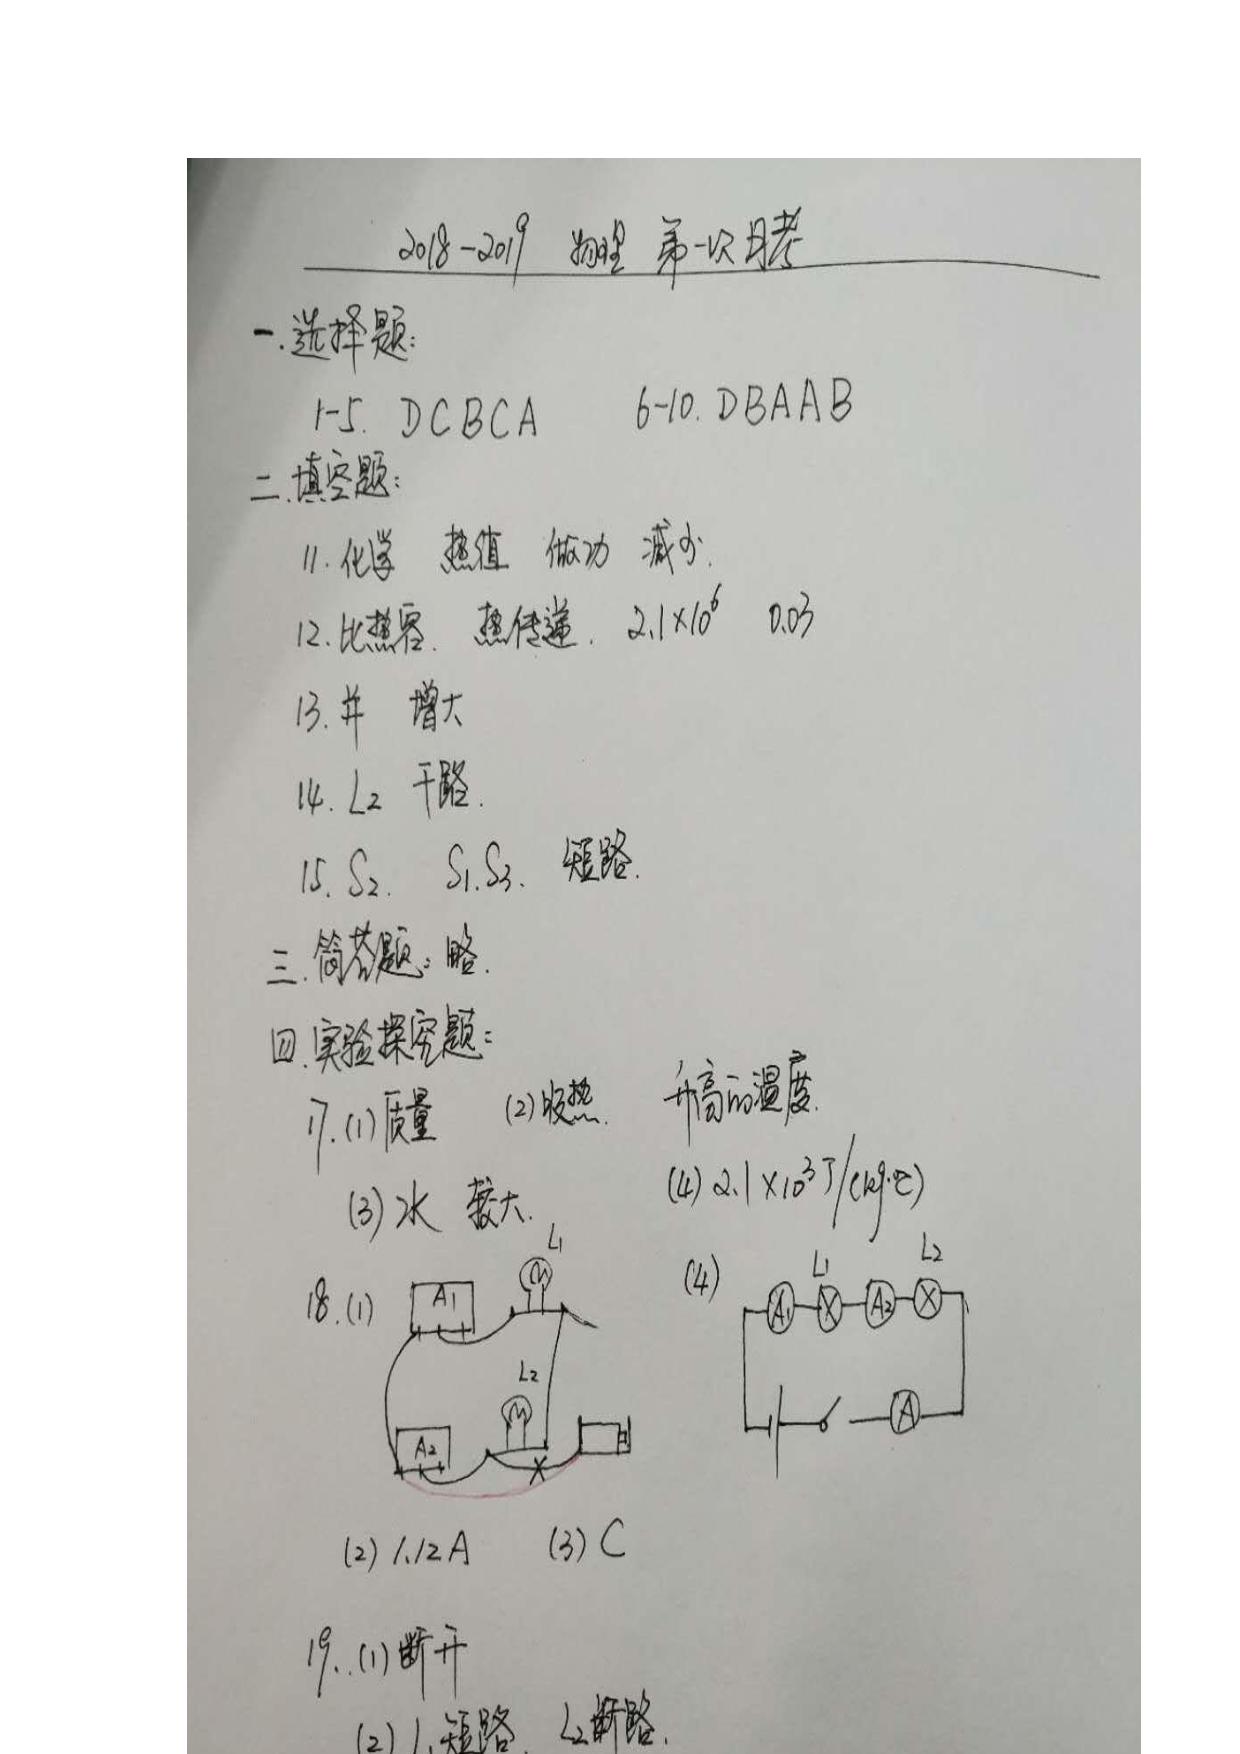 2018-2019 物理 第一次月考
一.选择题:
1-5. DCBCA 6-10. DBAAB
二.填空题:
11.化学 热值 做功 减少.
12.比热容. 热传递. 2.1×10⁶ 0.03
13.并 增大
14. L2 干路.
15. S2. S1.S3. 短路.
三.简答题:略.
四.实验探究题:
17.(1)质量 (2)吸热. 升高的温度.
(3)水 较大. (4)2.1×10³J/(kg·℃)
18.(1) A1 L1 (4) A1 L1 A2 L2
A2 L2 A
(2) 1.12A (3) C
19.(1)断开
(2) L1短路. L2断路.